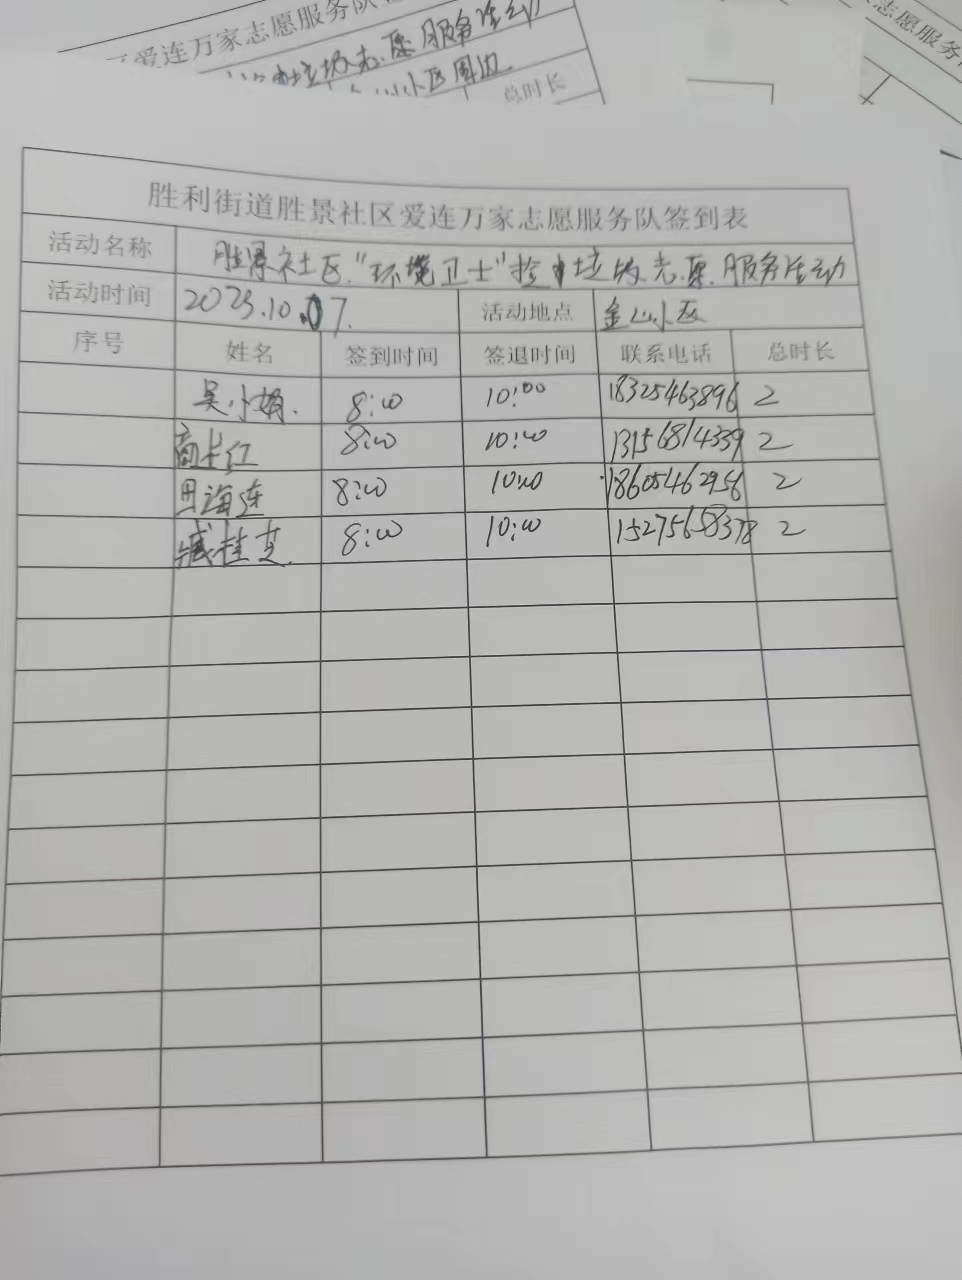 爱连万家志愿服务队
垃圾志愿服务活动
小区周边
总时长
志愿服务
胜利街道胜景社区爱连万家志愿服务队签到表
活动名称 胜景社区“环境卫士”捡垃圾志愿服务活动
活动时间 2023.10.07. 活动地点 金山小区
序号 姓名 签到时间 签退时间 联系电话 总时长
吴小娟. 8:00 10:00 18325463896 2
商红 8:00 10:00 13156814339 2
田海连 8:00 10:00 18605462956 2
臧桂芝. 8:00 10:00 15275658378 2